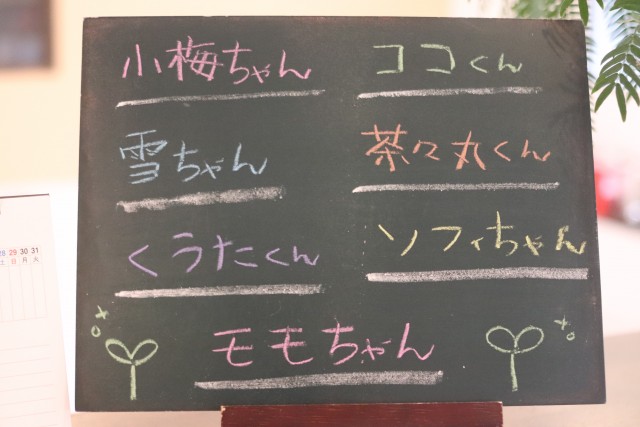 小梅ちゃん
ココくん
雪ちゃん
茶々丸くん
くうたくん
ソフィちゃん
モモちゃん
28 29 30 31
土 日 月 火